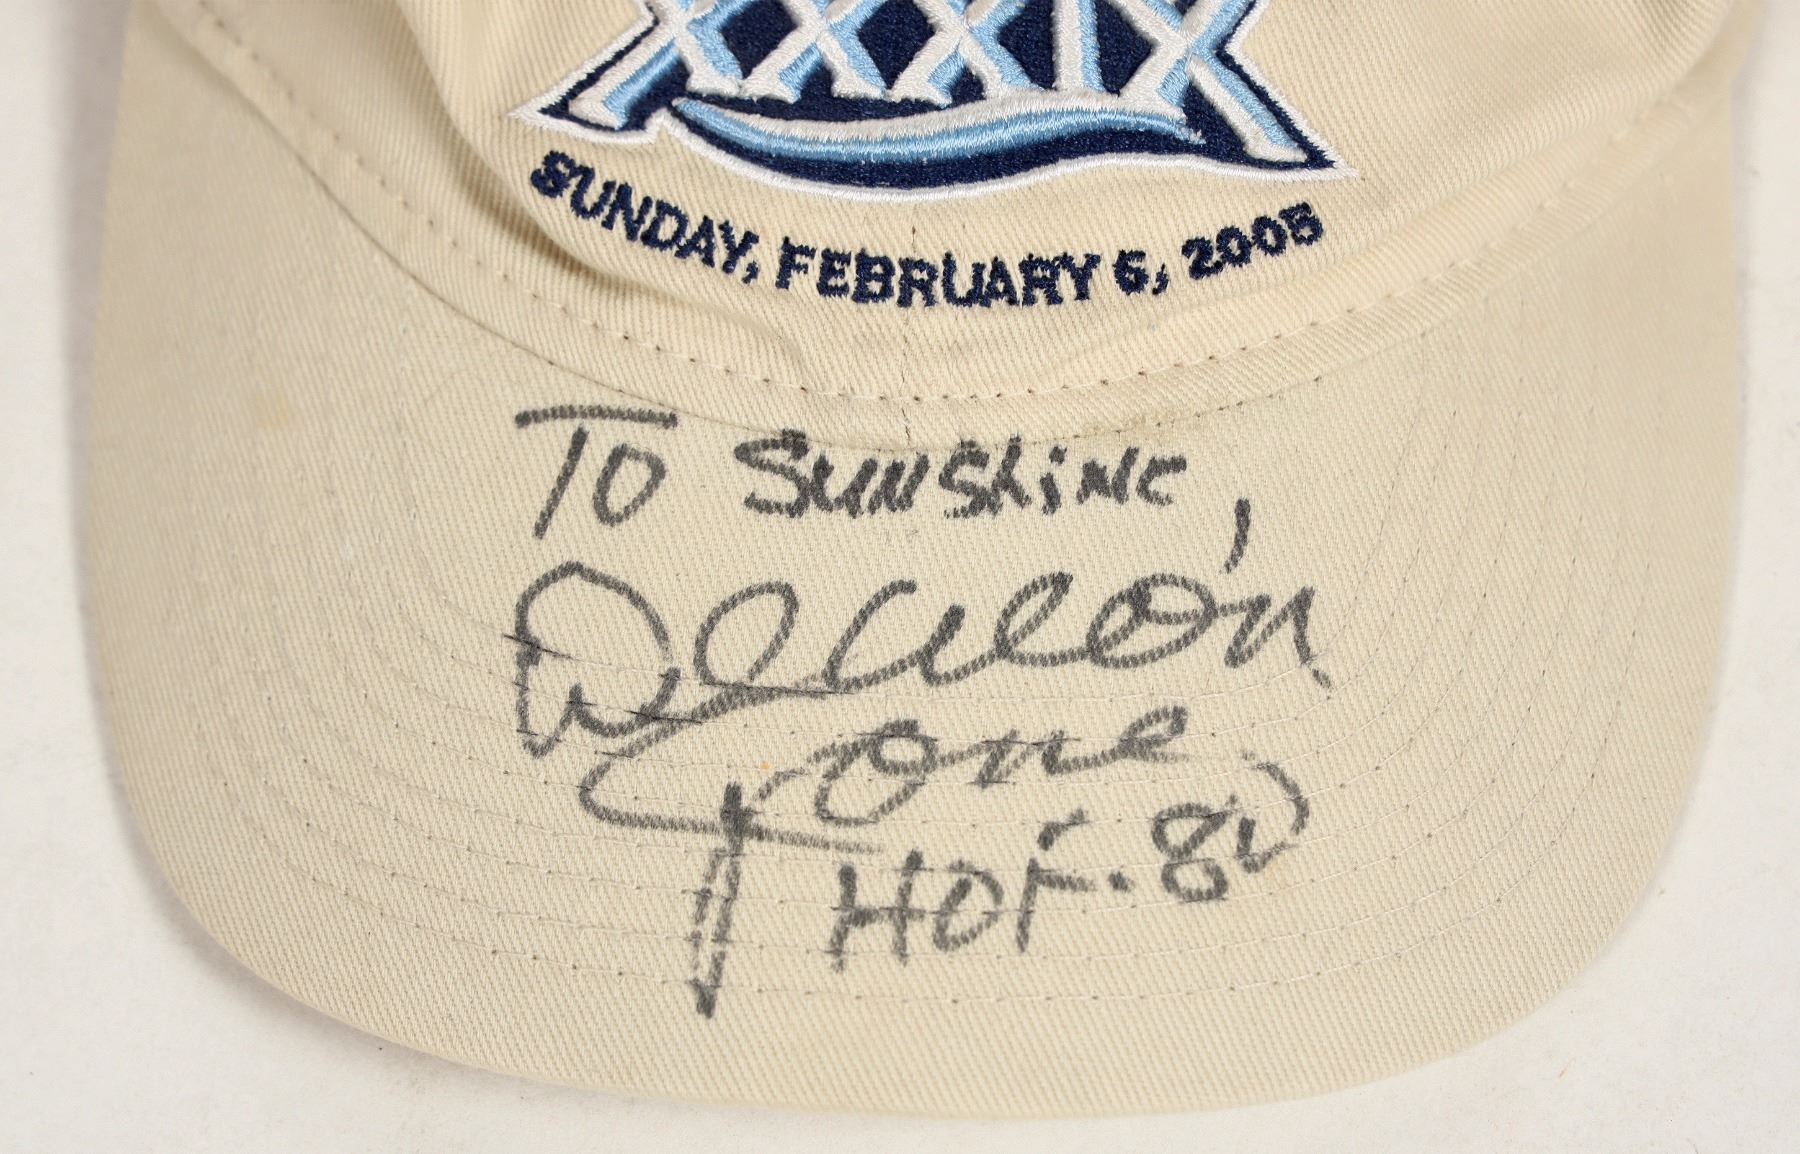 XXXIX
SUNDAY, FEBRUARY 6, 2005
To Sunshine,
Deacon
Jones
HOF. 80